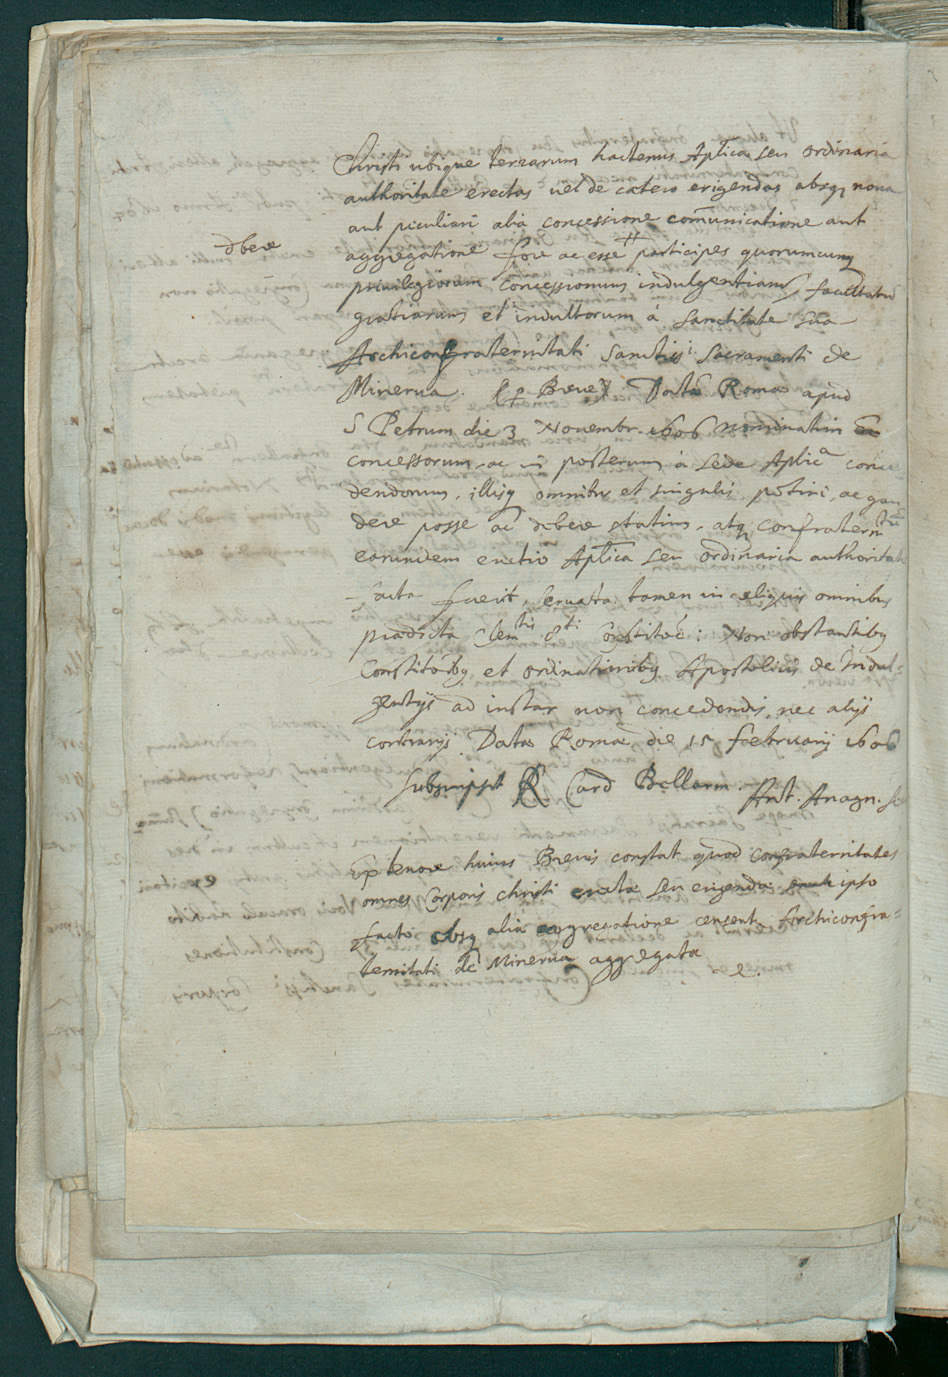 Christi ubique terrarum hactenus Aplica seu ordinaria
authoritate erectas vel de cætero erigendas absq nova
aut piculiari alia concessione comunicatione aut
debere
aggregatione fore ac esse participes quorumcunq
privilegiorum, concessionum indulgentiarum, facultatu
gratiarum et indultorum a Sanctitate sua
Archiconfraternitati Sanctissi Sacramenti de
Minerva. (p Breve) Datu Romæ apud
S Petrum die 3 Novembr. 1606 nominatim
concessorum, ac in posterum à Sede Aplica conce
dendorum, illisq omnibus et singulis potiri, ac gau
dere posse ac debere statim, atq confraternitatu
earundem erectio Aplica seu ordinaria authoritate
facta fuerit, servata tamen in reliquis omnibus
prædicta Clemtis 8ti constitoe: Non obstantibq
Constitoibq et ordinationibq Apostolicis de Indul-
gentijs ad instar non concedendis, nec alijs
contrarijs. Datæ Romæ die 15 februarij 1606
subscripsit R Card Bellarm. Ant. Anagn. Se
Ex tenore huius Brevis constat quod confraternitates
omnes Corporis Christi erectæ seu erigendæ ipso
facto absq alia aggregatione censent Archiconfra-
ternitati de Minerva aggregatæ